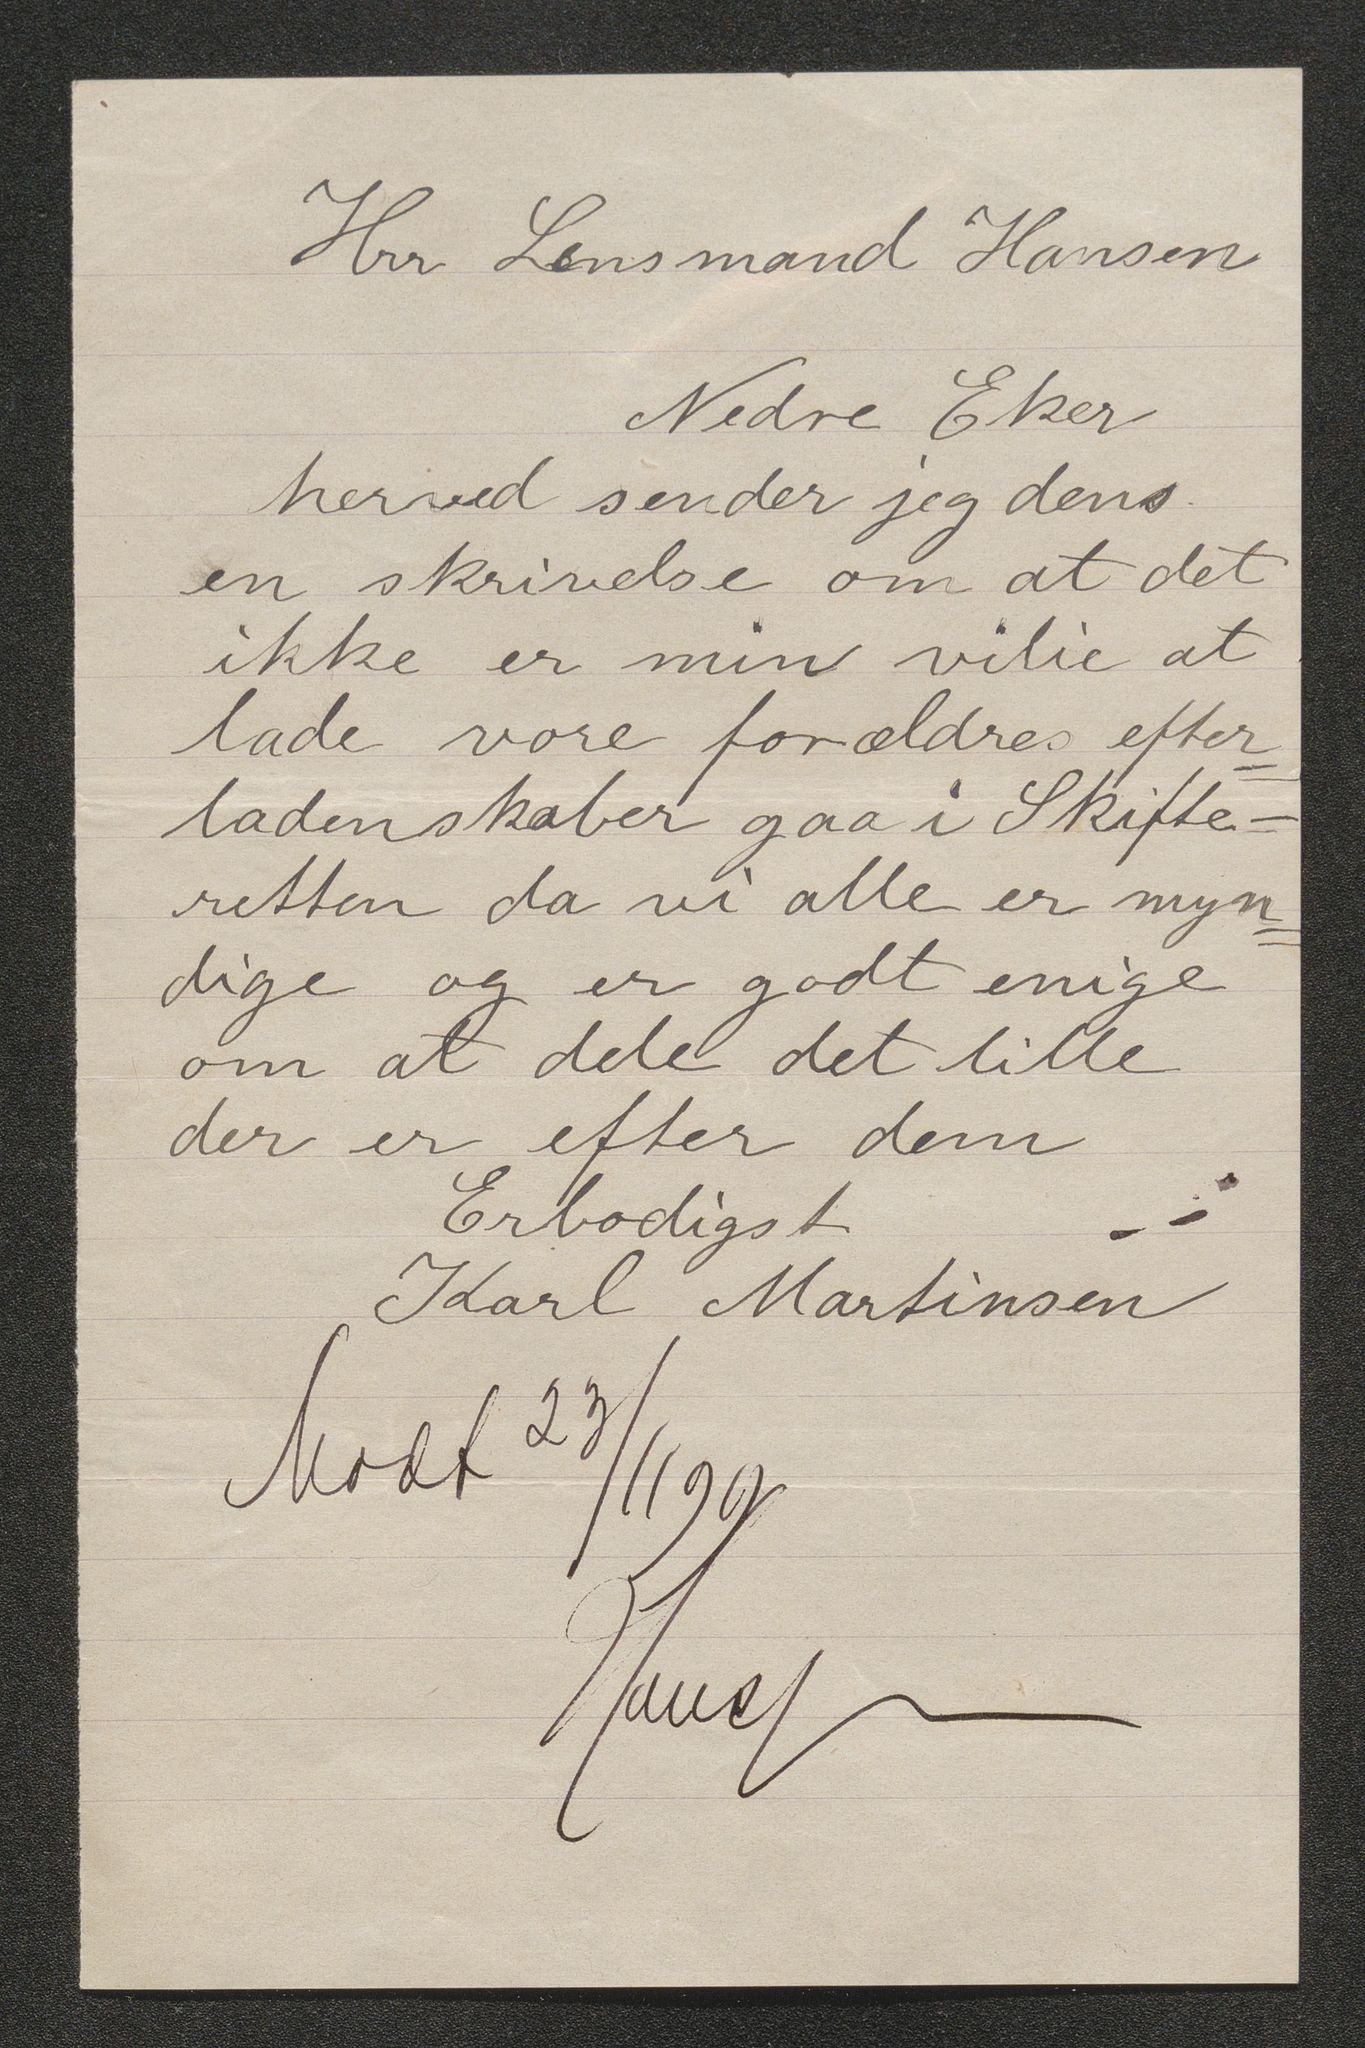 Hrr Lensmand Hansen
Nedre Eker
herved sender jeg dens
en skrivelse om at det
ikke er min vilie at
lade vore forældres efter=
ladenskaber gaa i Skifte-
retten da vi alle er myn=
dige og er godt enige
om at dele det lille
der er efter dem
Erbodigst
Karl Martinsen
Modt 23/11 99
Hansen